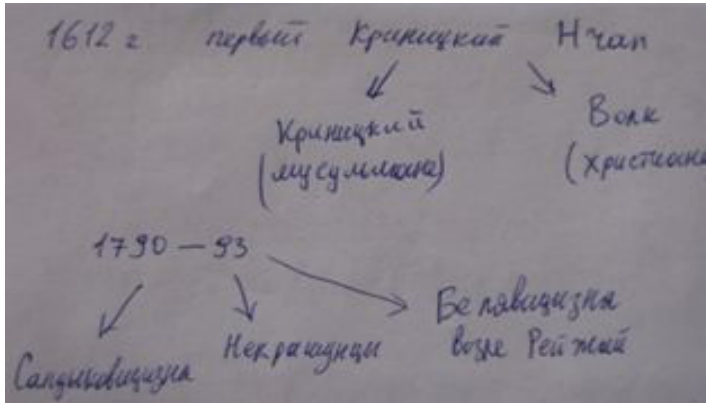 1612 г первый Криницкий Нчап
Криницкий
(мусульмане)
Волк
(христиане
1790 – 93
Сандыковщизна
Некрашунцы
Белявщизна
возле Рейжий